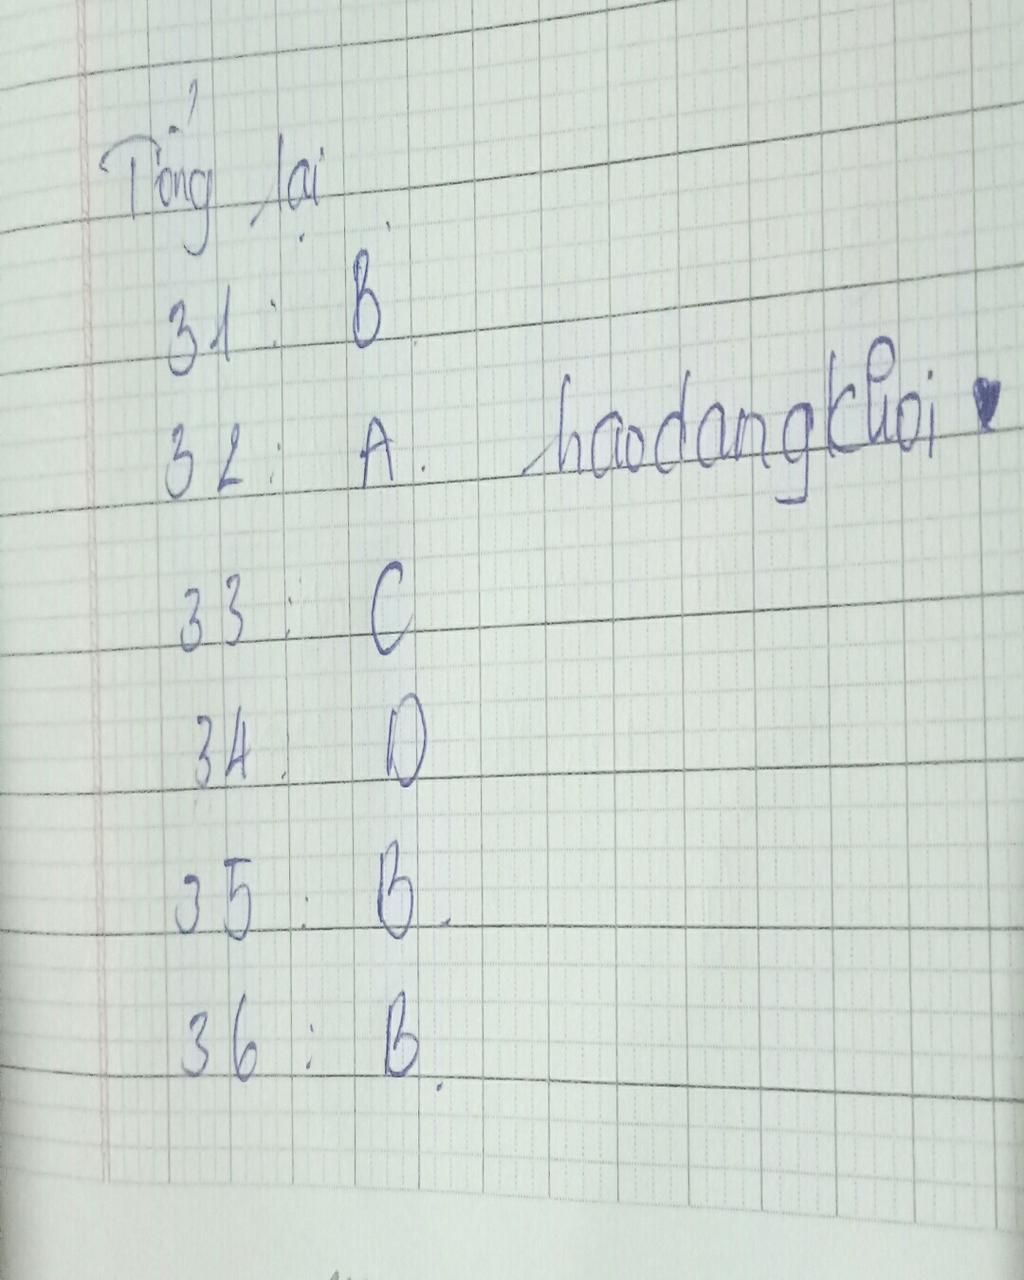 Tổng lại
31: B
32: A. haodangkhoi ♥
33: C
34. D
35: B.
36: B.